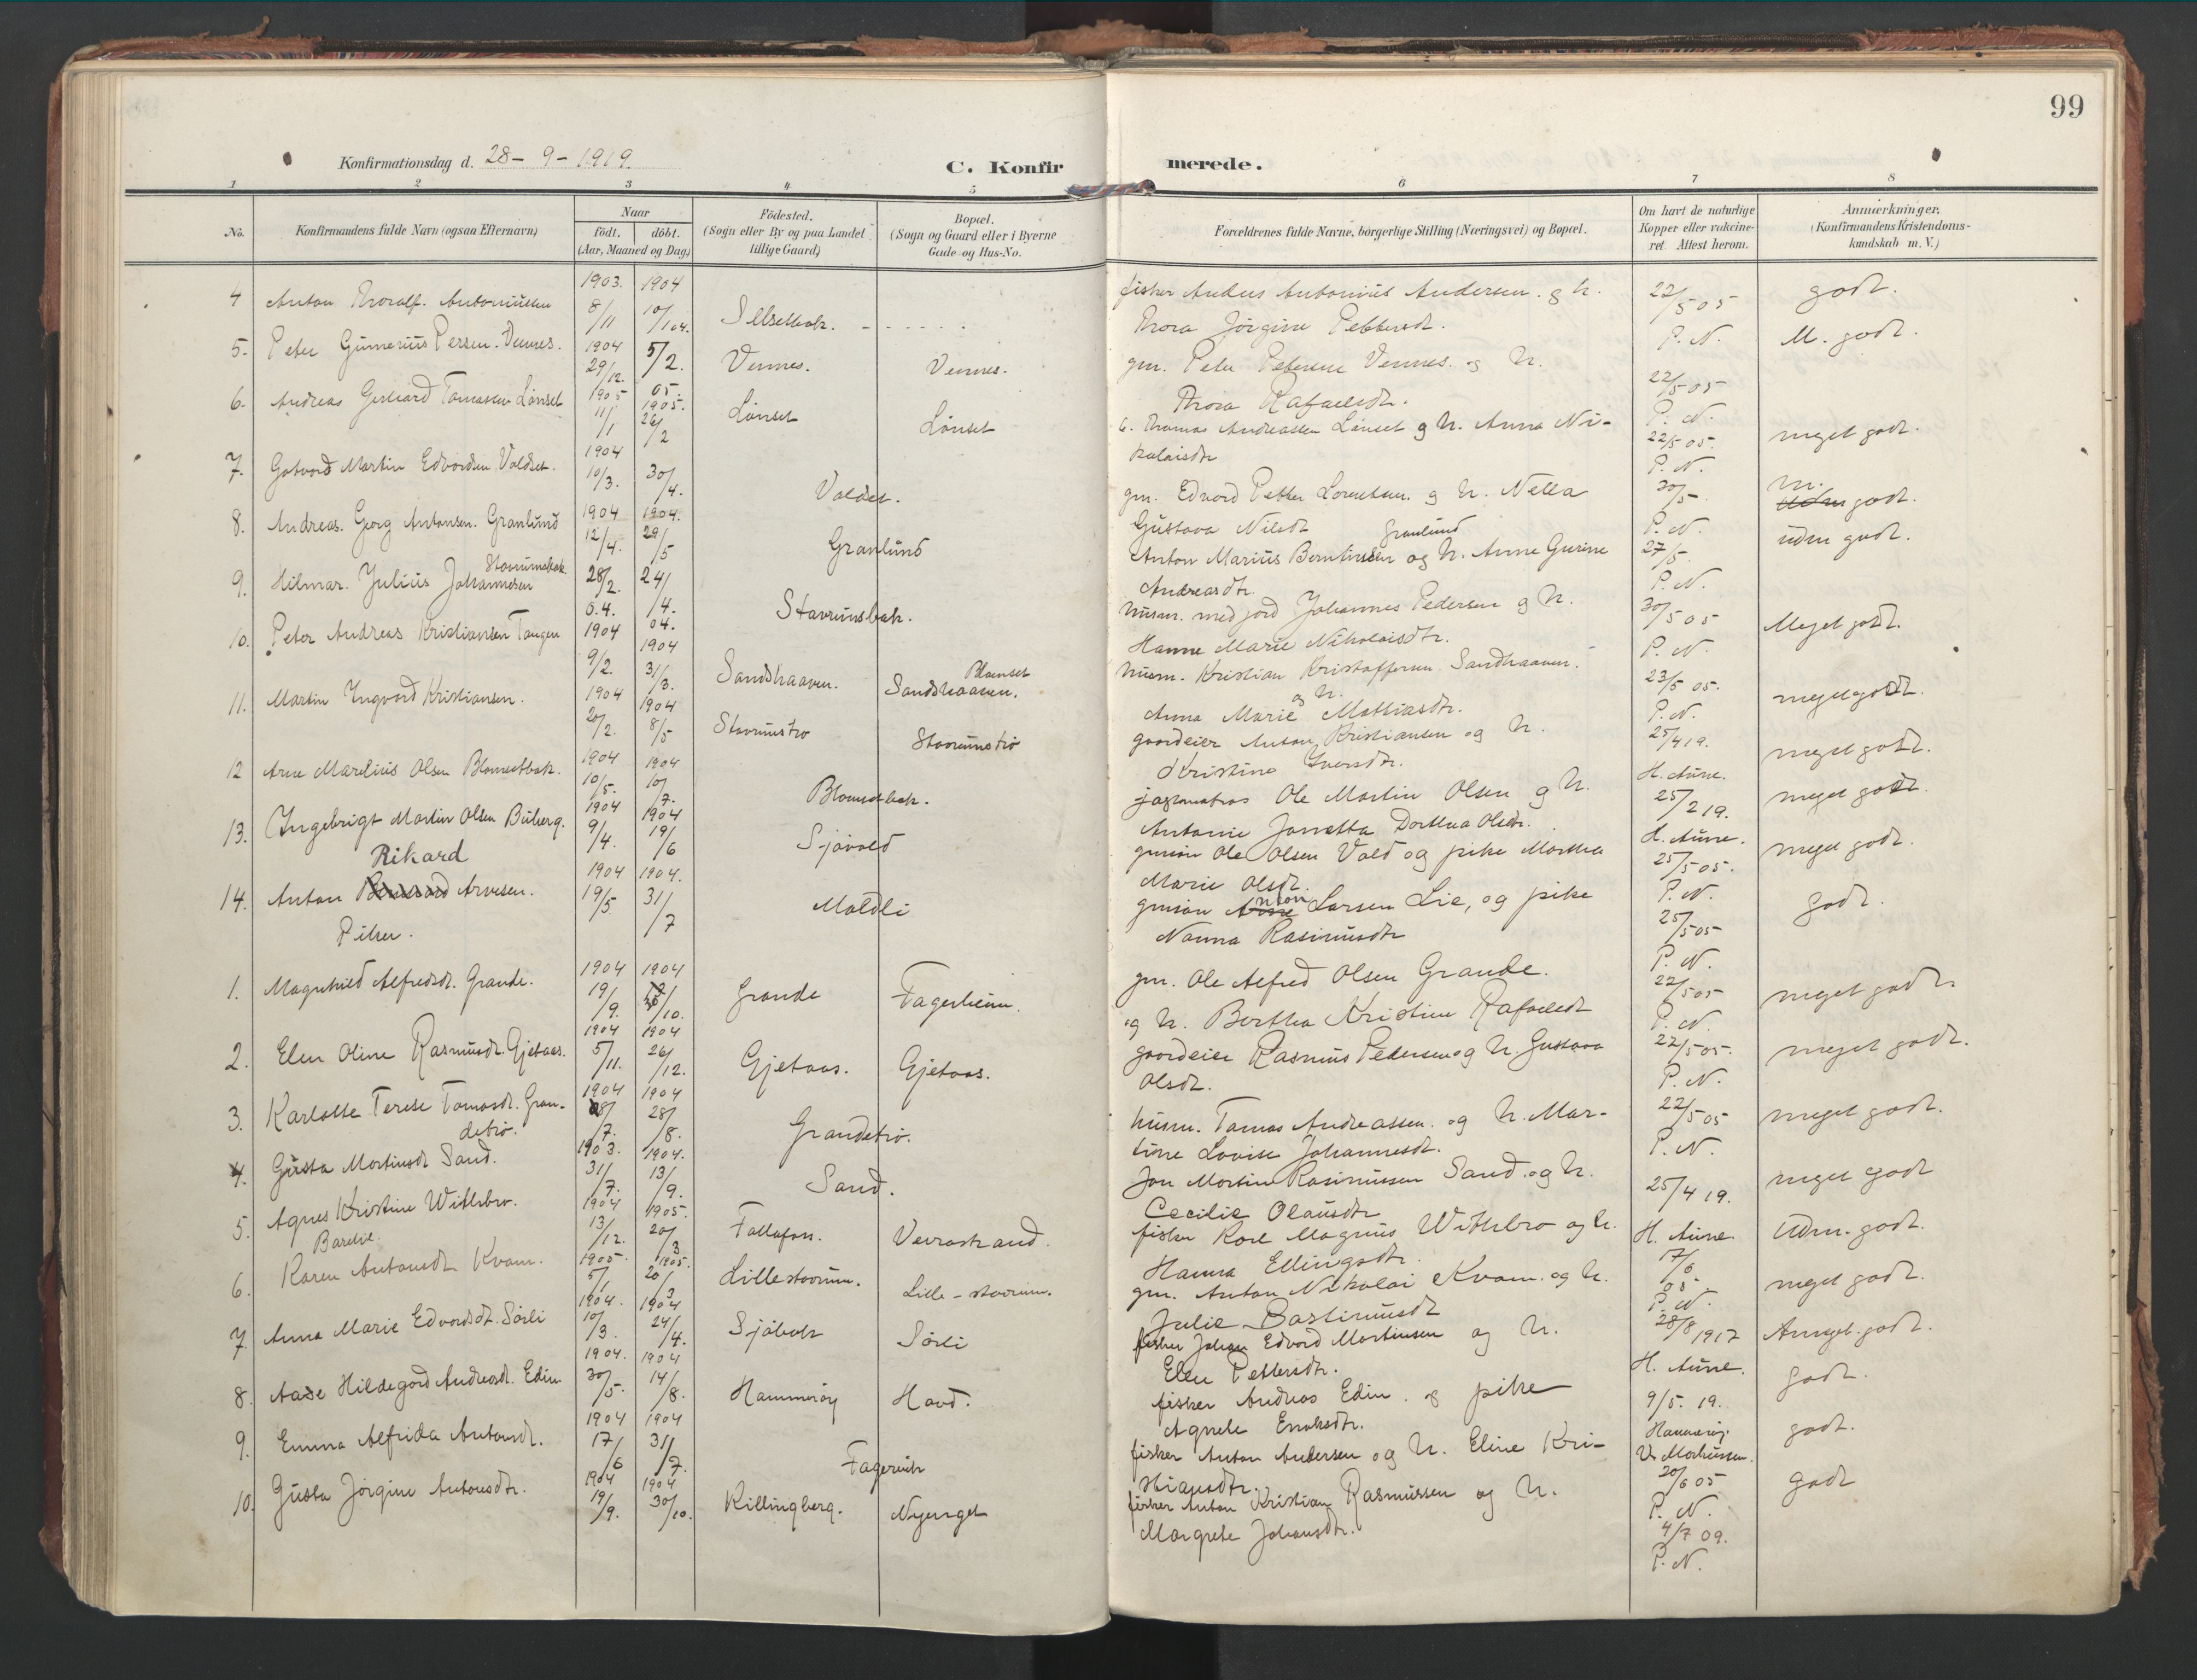 99
Konfirmationsdag d. 28-9-1919.
C. Konfirmerede.
1 2 3 4 5 6 7 8
No.
Konfirmandens fulde Navn (ogsaa Efternavn)
Naar
födt. döbt.
(Aar, Maaned og Dag)
Födested.
(Sogn eller By og paa Landet
tillige Gaard)
Bopæl.
(Sogn og Gaard eller i Byerne
Gade og Hus-No.
Forældrenes fulde Navne, borgerlige Stilling (Næringsvei) og Bopæl.
Om havt de naturlige
Kopper eller vakcine-
ret. Attest herom.
Anmærkninger.
(Konfirmandens Kristendoms-
kundskab m. V.)
4 Anton Thoralf. Antoniussen 1903. 8/11 1904 10/1 04. Selsetbak.
fisker Anders Antonius Andersen. og h.
Thora Jørgine Pettersdt.
22/5 05 P. N. godt.
5. Peter Gumerius Persen. Vennes. 1904 29/12. 5/2. 05. Vennes. Vennes.
gm. Peter Petersen Vennes. og h.
Thora Rafaelsdt.
22/5 05 P. N. M. godt.
6. Andreas Gerhard Tomassen Lønset 1905 11/1 1905. 26/2 Lønset Lønset
Thomas Andreassen Lønset og h. Anna Ni-
kolaisdtr
22/5 05. P. N. meget godt.
7. Gotvard Martin Edvardsen Valdset. 1904 10/3. 30/4. Valdset.
gm. Edvard Petter Lorentsen. og h. Nella
Gustava Nilsdt
30/5- P. N. m. godt.
8. Andreas. Georg Antonsen. Granlund 1904 12/4. 1904. 29/5 Granlund
Granlund
Anton Marius Berntinsen og h. Anne Gurine
Andreasdtr.
27/5- P. N. udm godt.
9. Hilmar. Julius Johannesen Stavrumsbak. 28/2. 0.4. 24/4. 04. Stavrumsbak.
husm. med jord Johannes Pedersen og h.
Hanne Marie Nikolaisdtr.
30/5 05 P. N. Meget godt.
10. Peter Andreas Kristiansen Tangen 1904 9/2. 1904 31/3. Sandshaaven. Sandshaaven.
husm. Kristian Kristoffersen Sandhaaven.
og h.
Anna Marie Mathiasdtr.
23/5 05. P. N. meget godt.
11. Martin Ingvard Kristiansen. 1904 20/2. 1904 8/5 Stavrumstrø Stavrumstrø
gaardeier Anton Kristiansen og h.
Kristine Iversdtr.
25/4 19. H. Aune. meget godt.
12 Arne Marelius Olsen Blomsetbak. 1904 10/5. 1904 10/7. Blomsetbak.
Ole Martin Olsen og h.
Antonie Jonetta Dorthea Olsdtr.
25/2 19. H. Aune. meget godt.
13. Ingebrigt Martin Olsen Buberg. 1904 9/4. 1904 19/6 Sjøvold
gmsøn Ole Olsen Vold og pike Martha
Marie Olsdt.
25/5 05. P. N. meget godt.
14. Anton Rikard Arnesen. 1904 19/5 1904. 31/7 Moldli
gmsøn Anton Larsen Lie, og pike
Nanna Rasmusdtr
25/5 05 P. N. godt.
Piker.
1. Magnhild Alfredsdt. Grande. 1904 19/9. 1904 /10. Grande Fagerheim.
gm. Ole Alfred Olsen Grande.
og h. Berthea Kristine Rafaelsdt
22/5 05 P. N. meget godt.
2. Elen Oline Rasmusdt. Gjetaas. 1904 5/11. 1904 26/12. Gjetaas. Gjetaas.
gaardeier Rasmus Pedersen og h. Gustava
Olsdt.
22/5 05. P. N. meget godt.
3. Karlotte Terese Tomasdt. Gran-
detrø. 1904 28/7. 1904 28/8. Grandetrø.
husm. Tomas Andreassen. og h. Mar-
tine Lovise Johannesdt.
22/5 05 P. N. meget godt.
4. Gusta Martinsdt Sand. 1903. 31/7. 1904. 13/9. Sand.
Jon Martin Rasmussen Sand. og h.
Cecilie Olausdtr
25/4 19. H. Aune. meget godt
5. Agnes Kristine Withsbro. 1904 13/12. 1905. 20/3 Veirastrand.
fisker Karl Magnus Withsbro og h.
Hanna Ellingsdtr.
17/6 05 P. N. Udm. godt.
6. Karen Antonsdt Kvam. 1905. 5/1 1905. 20/3 Lillestavrum. Lille-stavrum.
gm. Anton Nikolai Kvam. og h.
Julie Bastinusdt
meget godt.
7. Anna Marie Edvardsdt. Sørli 1904. 10/3. 1904 24/4. Sjøbak Sørli
fisker Johan Edvard Martinsen og h.
Elen Pettersdtr.
28/8 1917 H. Aune. godt.
8. Aase Hildegard Andreasdt. Edin 1904. 30/5. 1904 14/8. Hammerøy Havd.
fisker Andreas Edin. og pike
Agnete Enoksdtr.
9/5. 19. Hammerøy. godt.
9. Emma Alfrida Antonsdt. 1904 17/6 1904 31/7. Fagervik
fisker Anton Andersen og h. Eline Kri-
stiansdtr.
20/6 05 P. N. godt.
10. Gusta Jørgine Antonsdtr. 1904 19/9. 1904 30/10. Killingberg. Nyenget
fisker Anton Kristian Rasmussen og h.
Margrete Johansdtr.
4/7 09. P. N. godt